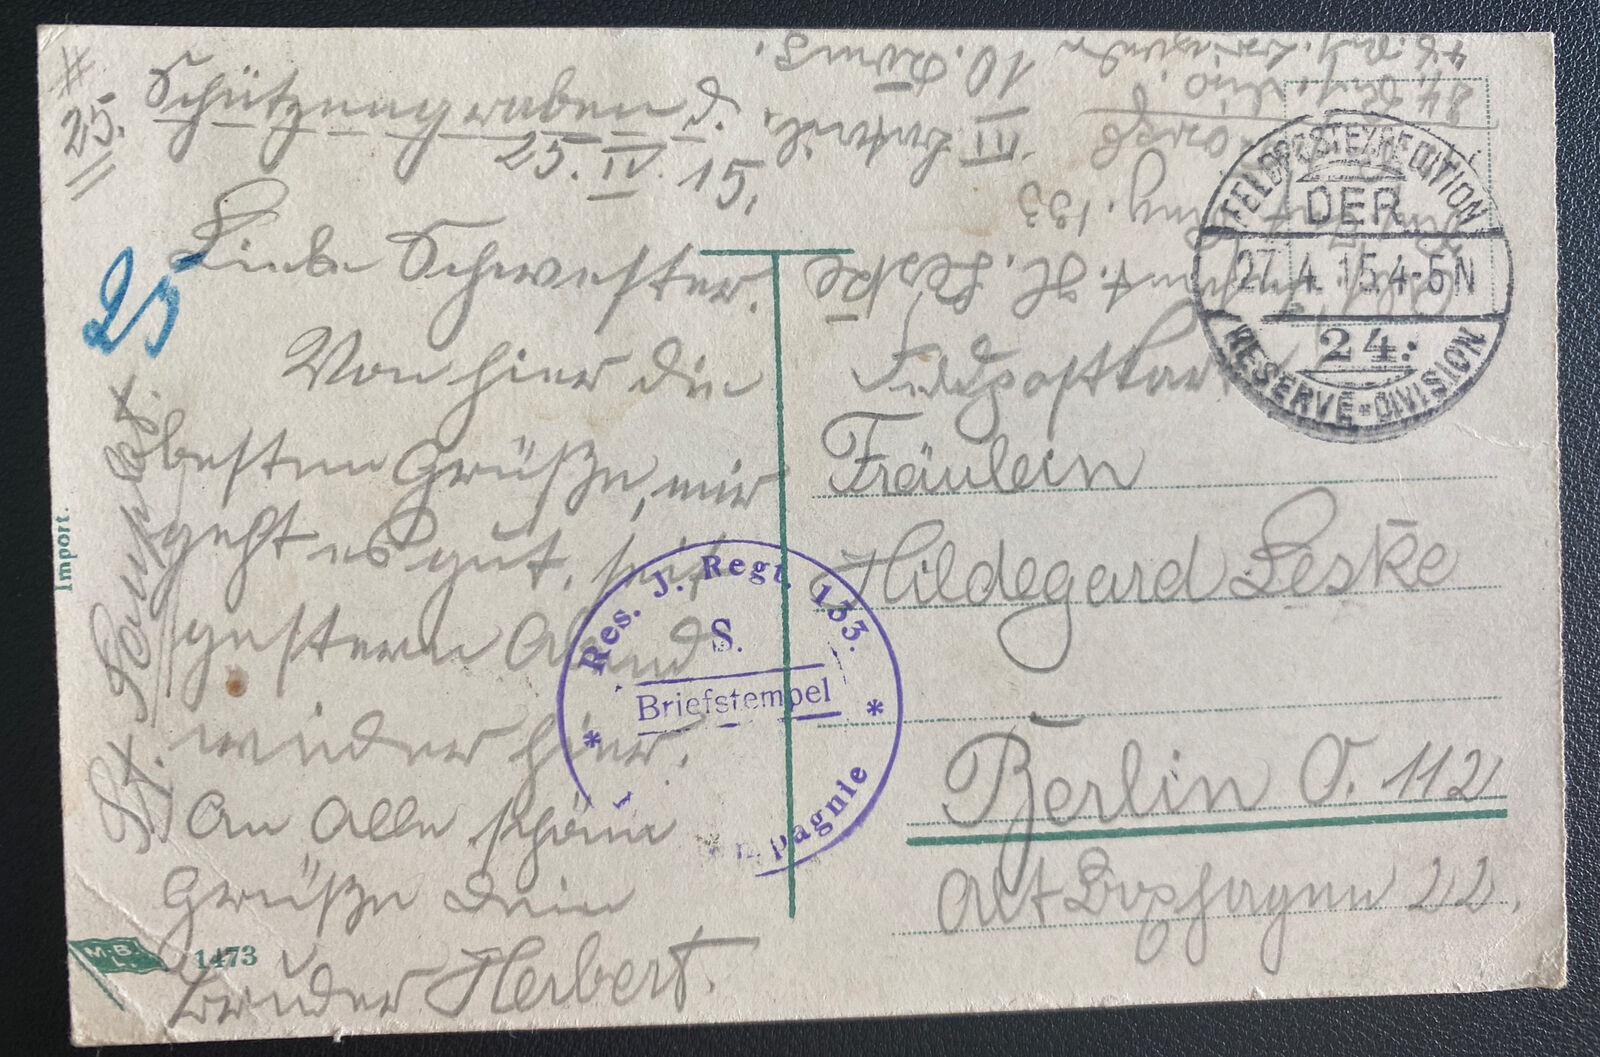 25.
Schützengraben d.
25. IV. 15.
Liebe Schwester.
Von hier die
besten Grüße, mir
geht es gut, seit
gestern Abend
wieder hier.
An Alle schöne
Grüße Dein
Bruder Herbert.
25
Import.
M.B.
L.
1473
H. Leske
133
III
10. Komp.
Feldpostkarte
Fräulein
Hildegard Leske
Berlin O. 112
Alt Boxhagen 22.
FELDPOSTEXPEDITION
DER
27.4.15.4-5N
24.
RESERVE-DIVISION
Res. J. Regt. 133.
S.
Briefstempel